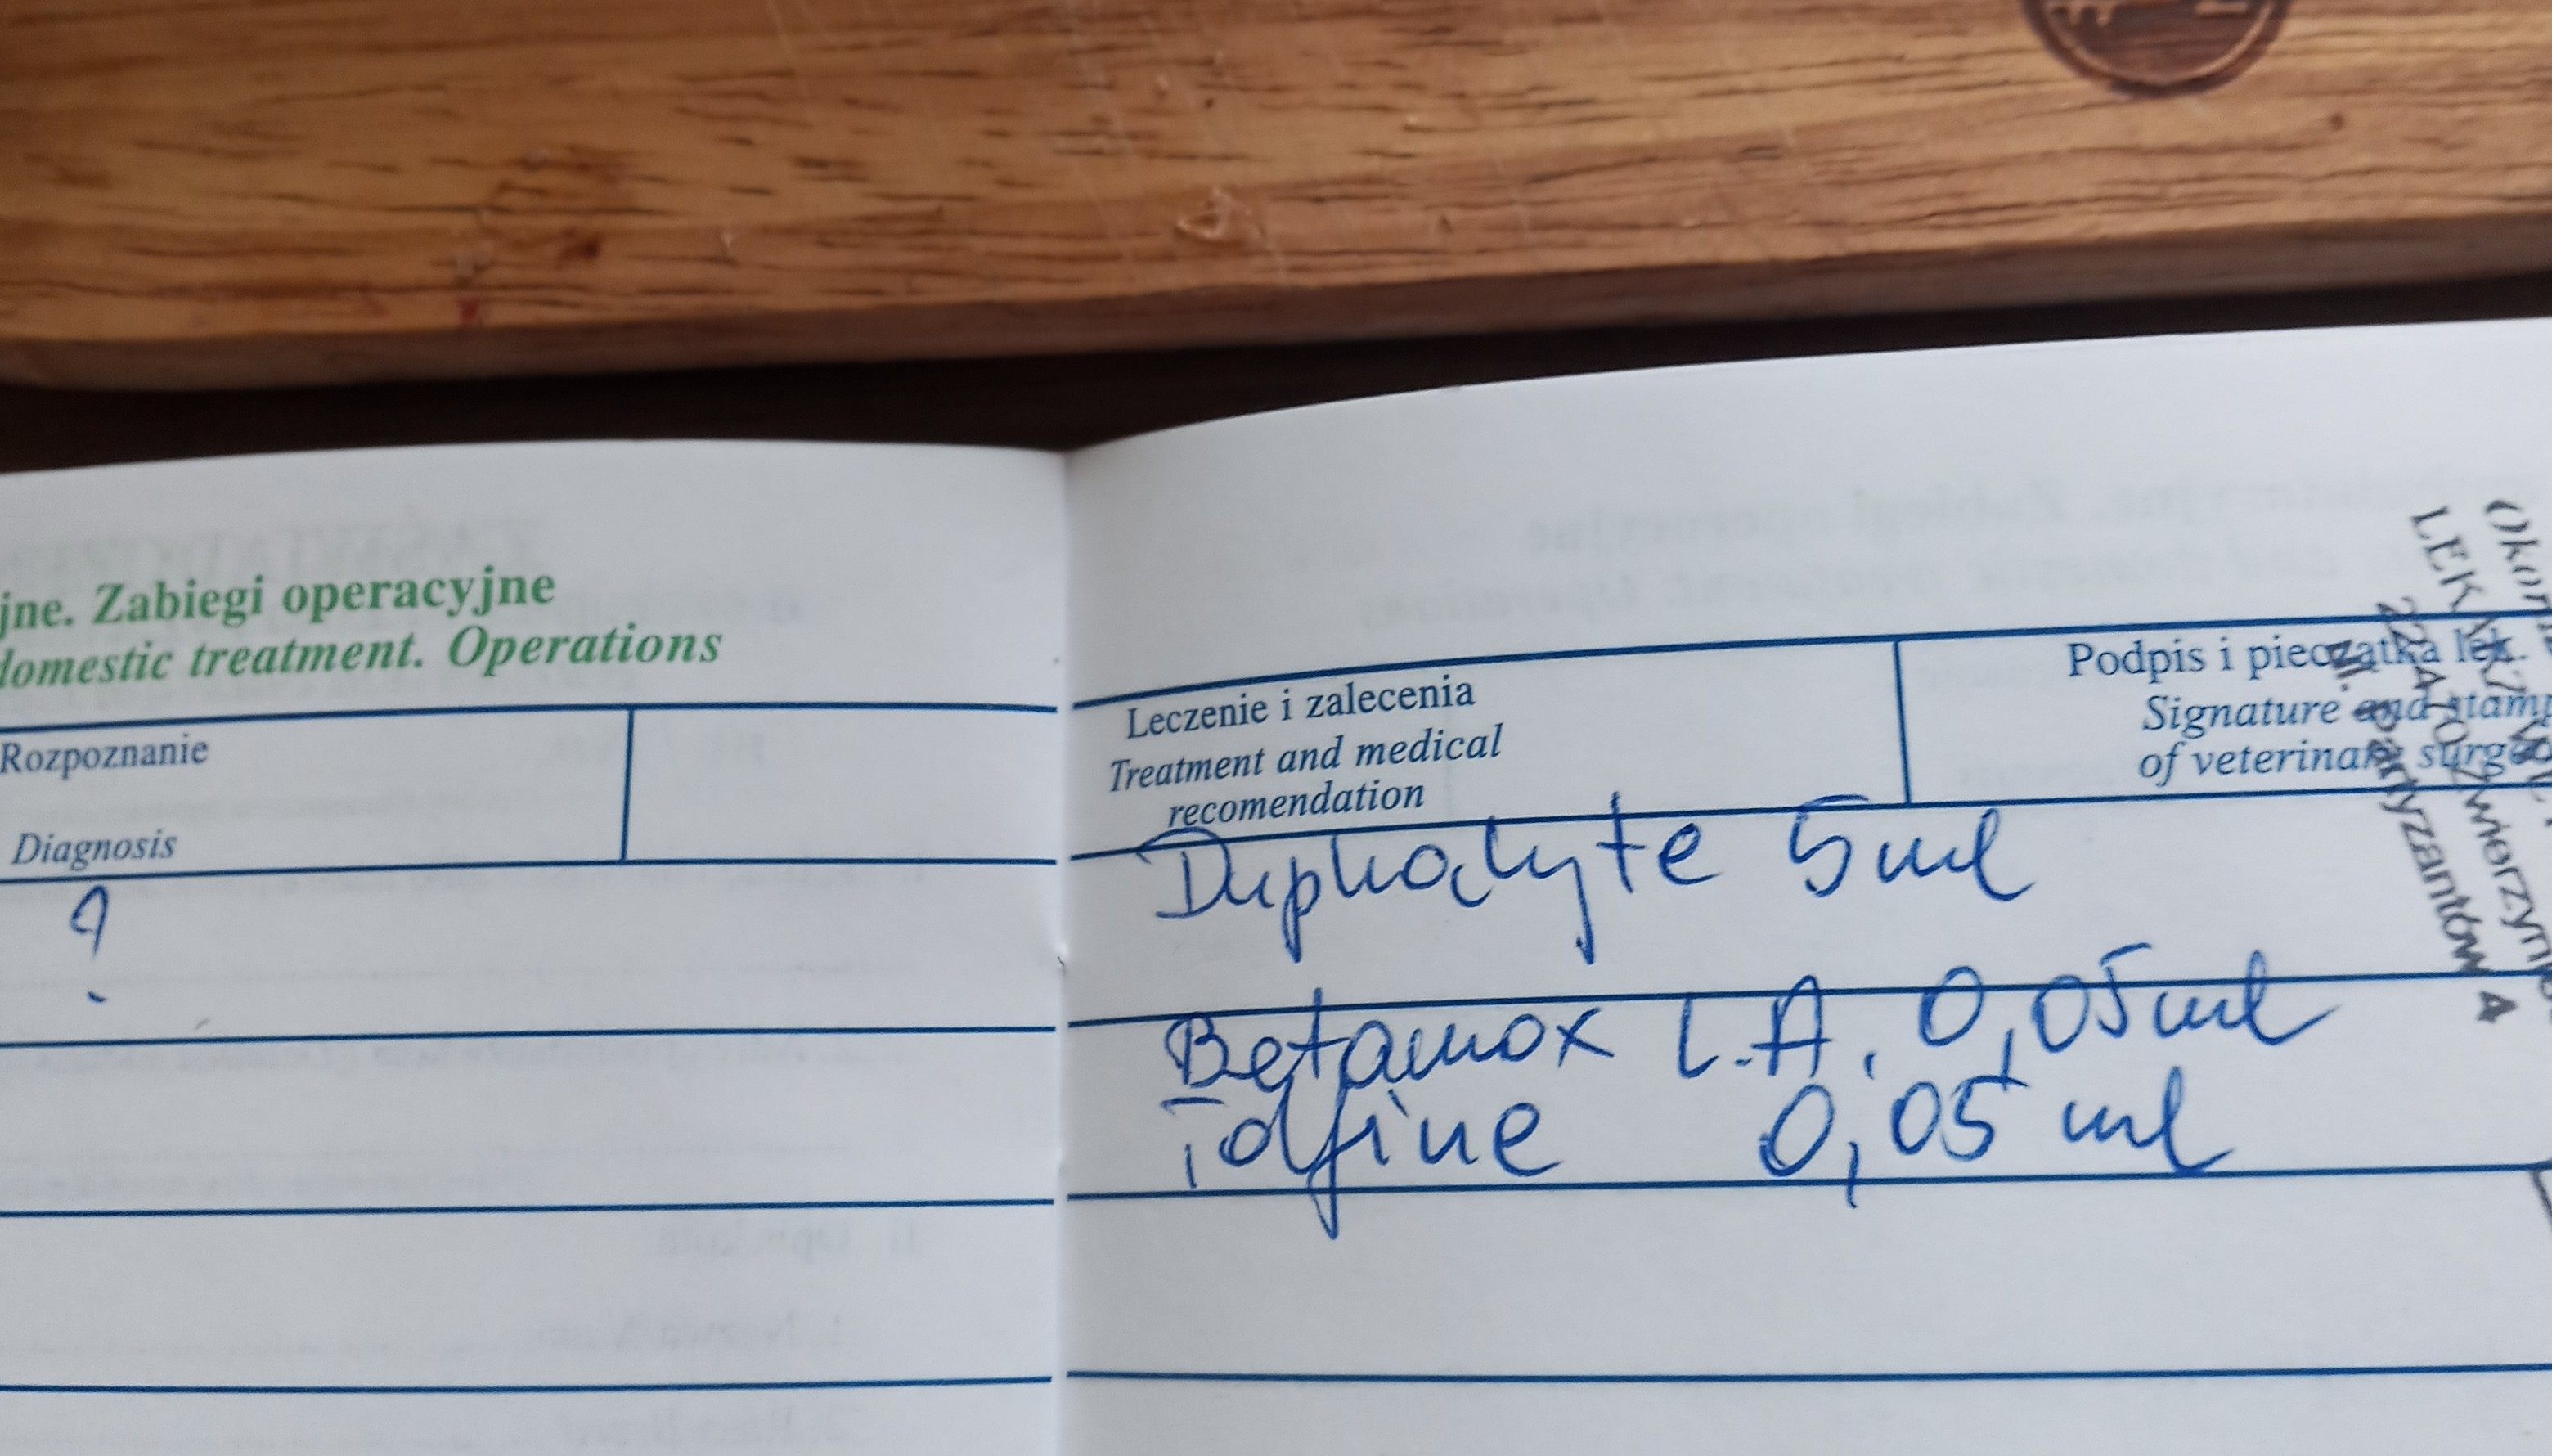 jne. Zabiegi operacyjne
domestic treatment. Operations
Rozpoznanie
Diagnosis
?
Leczenie i zalecenia
Treatment and medical
recomendation
Podpis i pieczątka lek.
Signature and stamp
of veterinary
Duphalyte 5 ml
Betamox L.A. 0,05 ml
Tolfine 0,05 ml
LEKARZ
Zwierzyn
Partyzantów 4